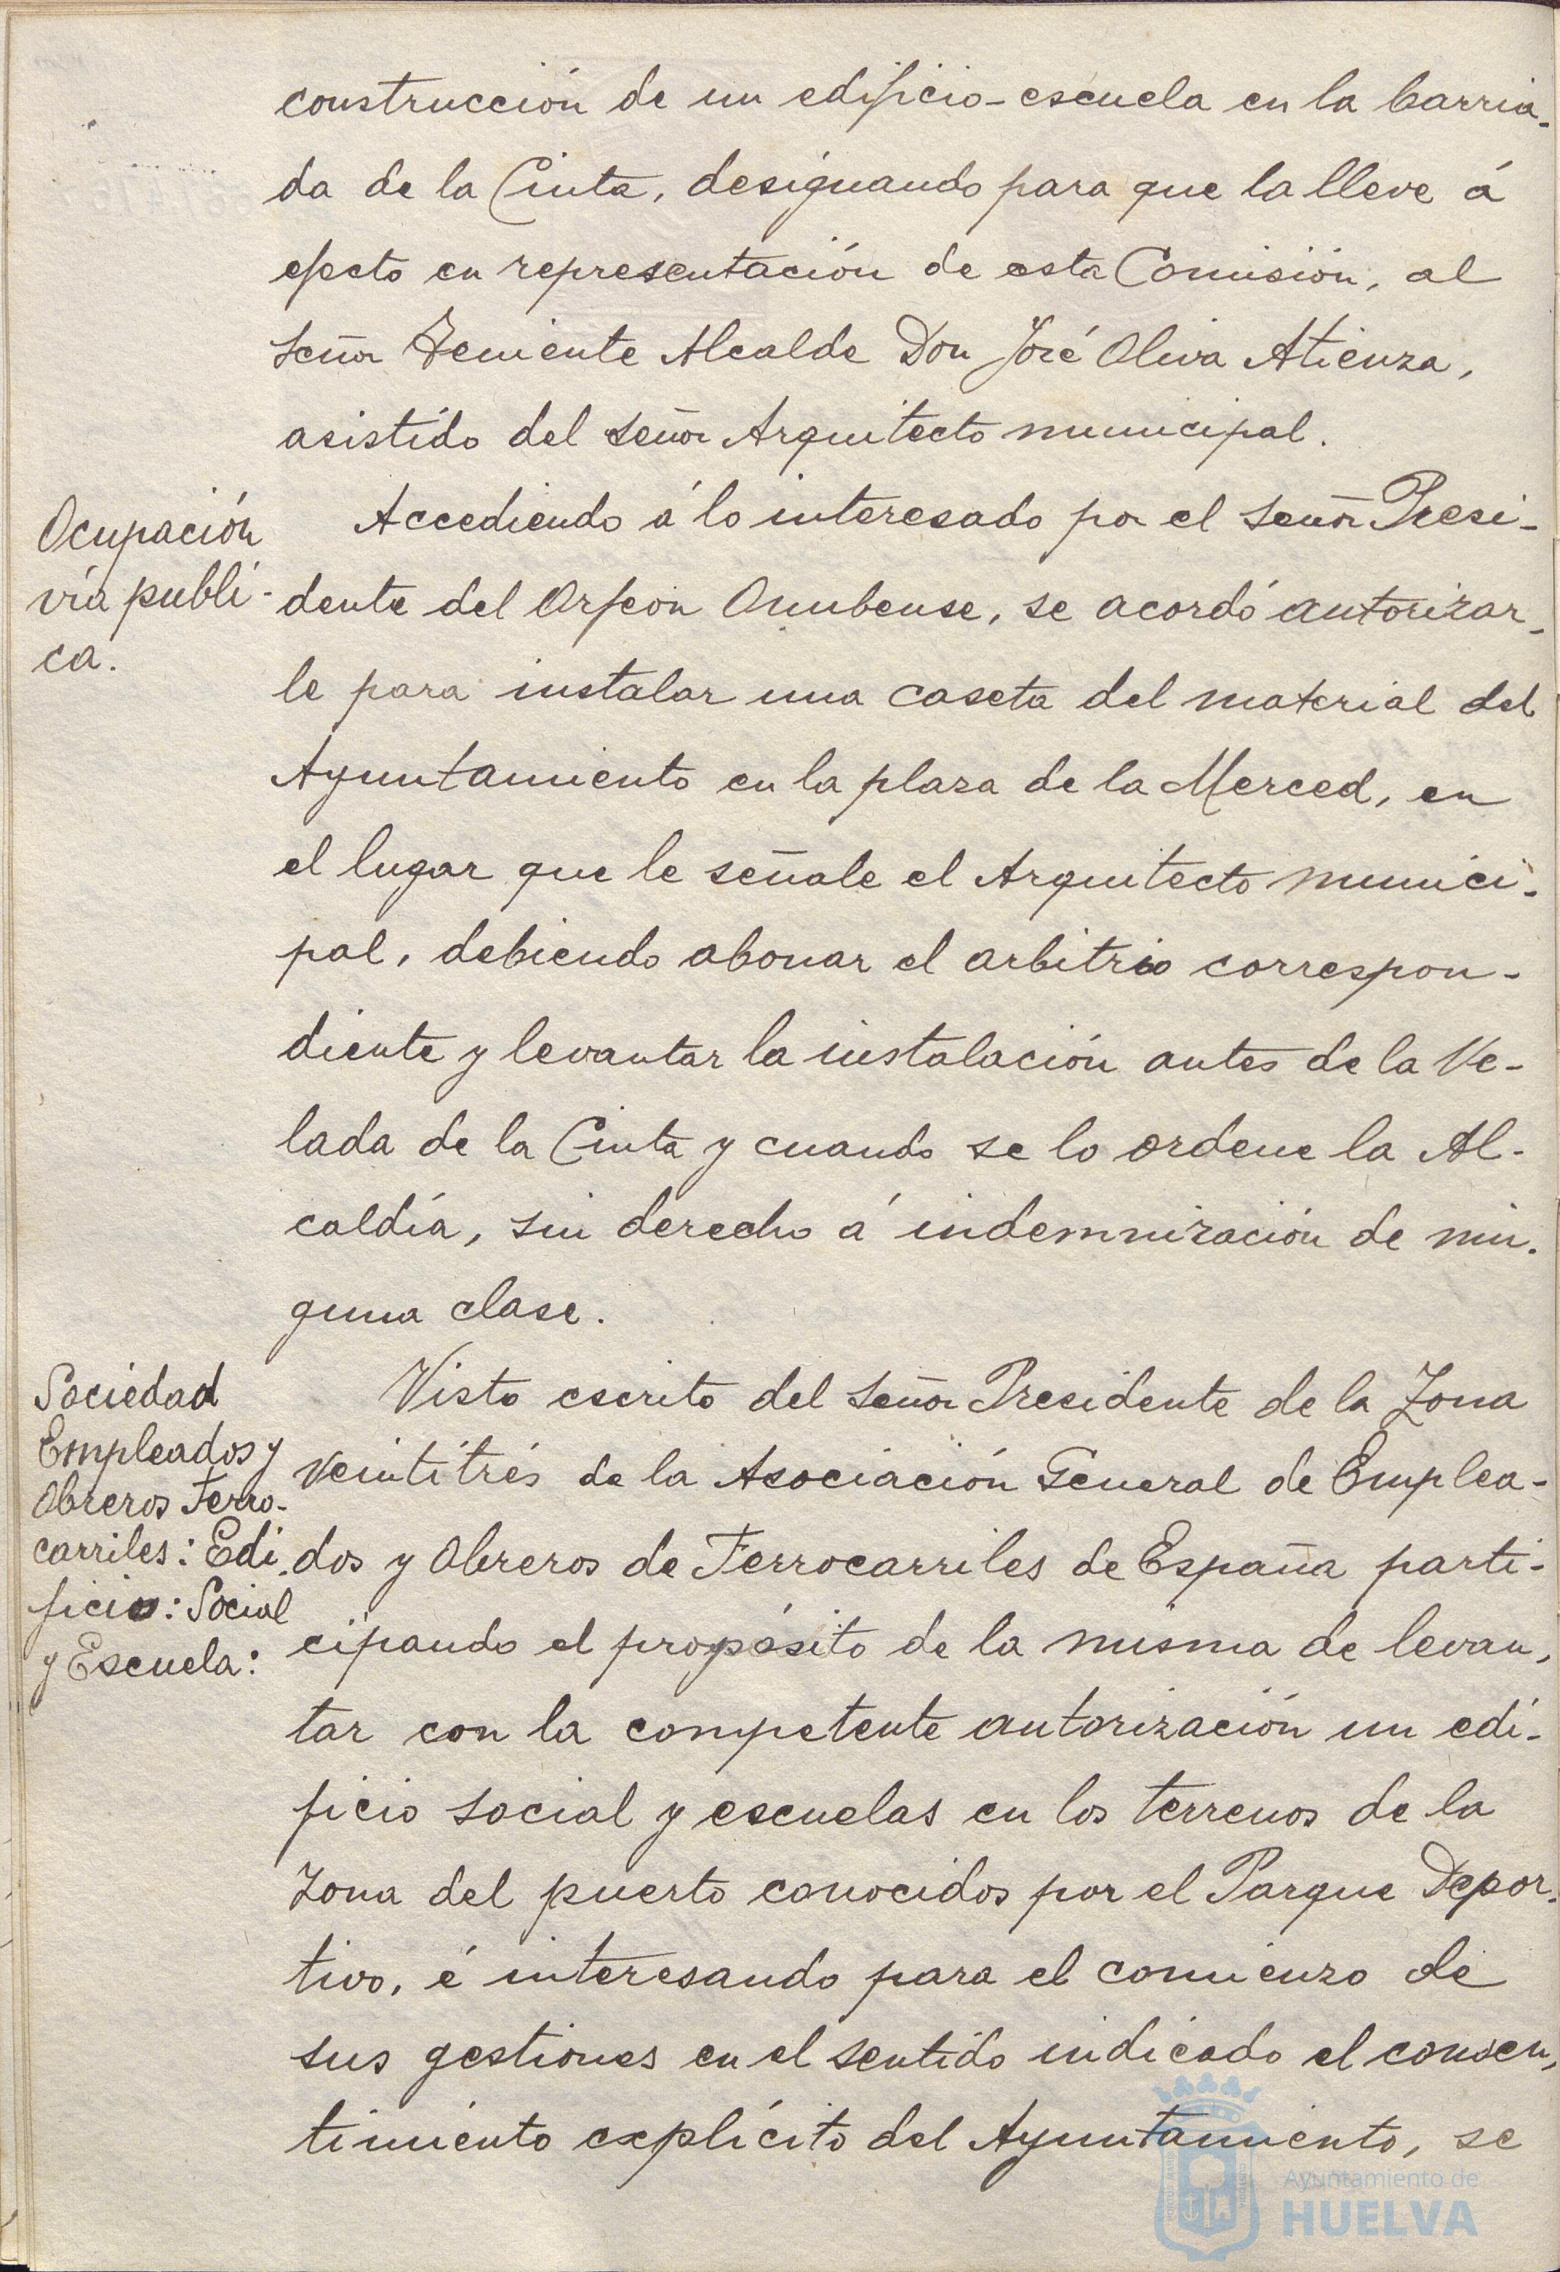 construcción de un edificio-escuela en la barria-
da de la Cinta, designando para que la lleve á
efecto en representación de esta Comisión, al
señor Teniente Alcalde Don José Oliva Atienza,
asistido del señor Arquitecto municipal.
Ocupación
vía públi-
ca.
Accediendo á lo interesado por el señor Presi-
dente del Orfeon Onubense, se acordó autorizar-
le para instalar una caseta del material del
Ayuntamiento en la plaza de la Merced, en
el lugar que le señale el Arquitecto munici-
pal, debiendo abonar el arbitrio correspon-
diente y levantar la instalación antes de la Ve-
lada de la Cinta y cuando se lo ordene la Al-
caldía, sin derecho á indemnización de nin-
guna clase.
Sociedad
Empleados y
Obreros Ferro-
carriles: Edi-
ficio: Social
y Escuela:
Visto escrito del señor Presidente de la Zona
veintitrés de la Asociación General de Emplea-
dos y Obreros de Ferrocarriles de España parti-
cipando el propósito de la misma de levan-
tar con la competente autorización un edi-
ficio social y escuelas en los terrenos de la
Zona del puerto conocidos por el Parque Depor-
tivo, é interesando para el comienzo de
sus gestiones en el sentido indicado el consen-
timiento explícito del Ayuntamiento, se
Ayuntamiento de
HUELVA